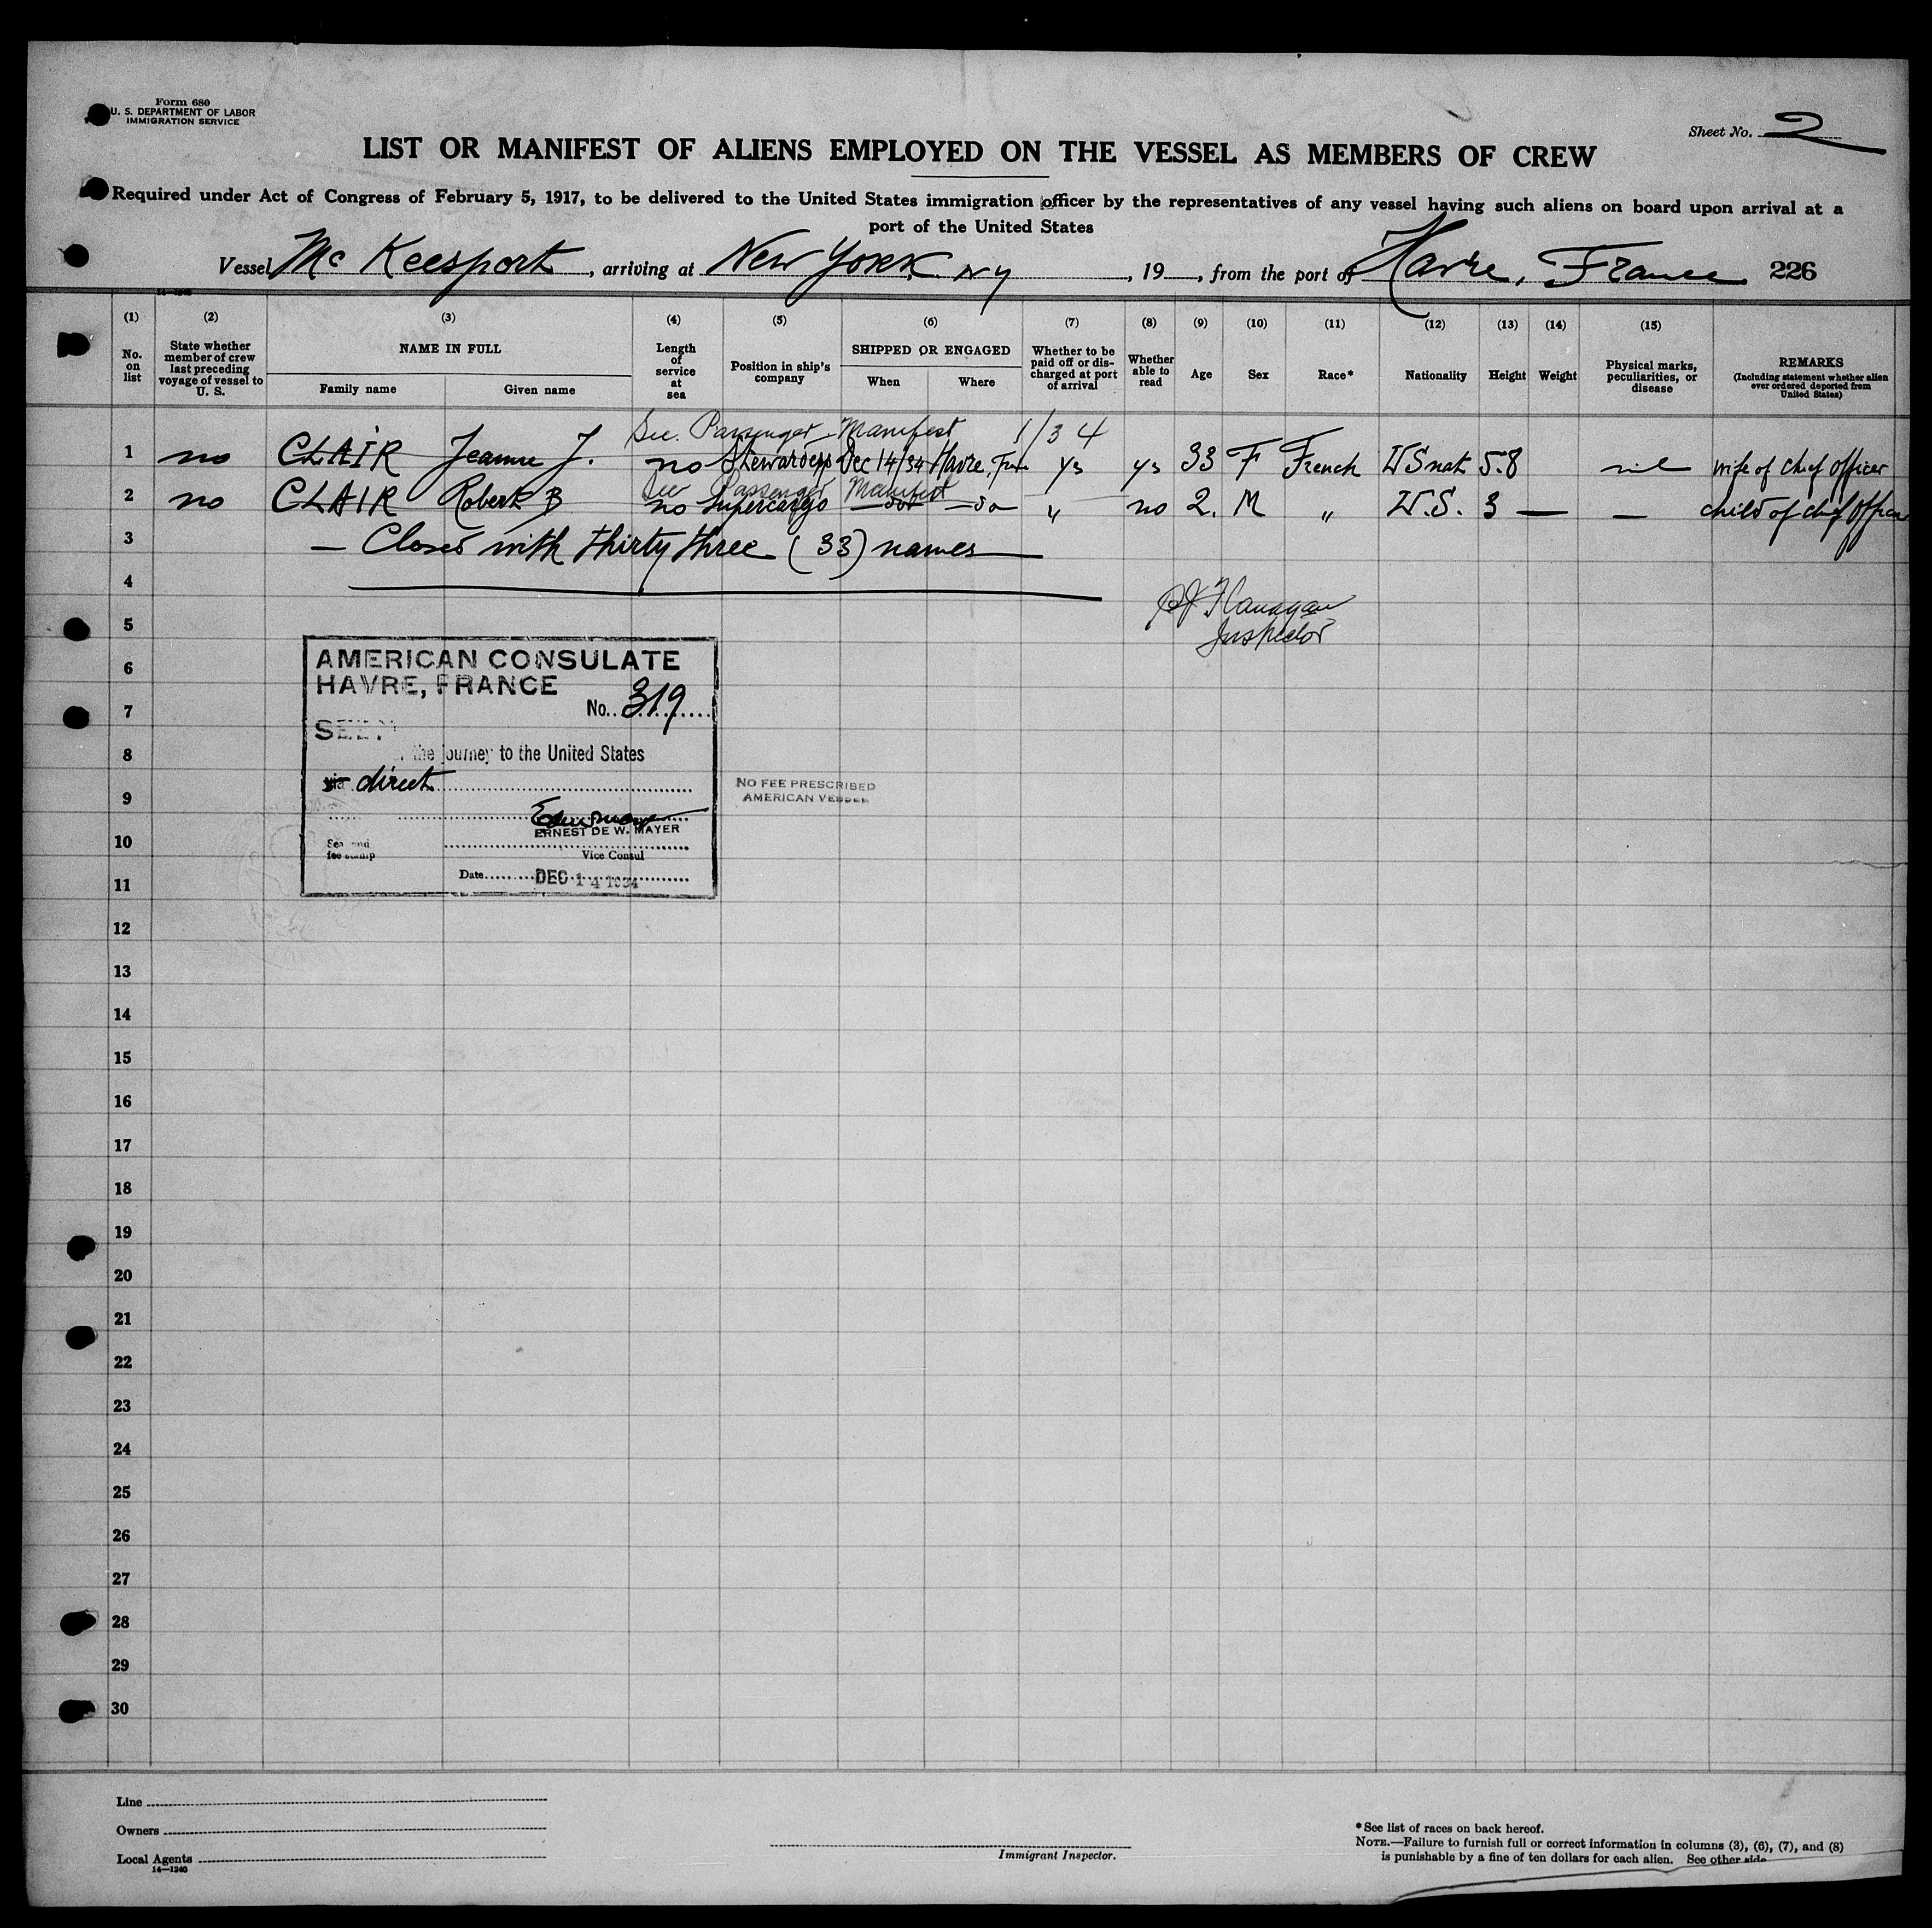 Form 680
U. S. DEPARTMENT OF LABOR
IMMIGRATION SERVICE
Sheet No. 2
LIST OR MANIFEST OF ALIENS EMPLOYED ON THE VESSEL AS MEMBERS OF CREW
Required under Act of Congress of February 5, 1917, to be delivered to the United States immigration officer by the representatives of any vessel having such aliens on board upon arrival at a
port of the United States
Vessel Mc Keesport, arriving at New York NY, 19, from the port of Havre, France 226
(1) (2) (3) (4) (5) (6) (7) (8) (9) (10) (11) (12) (13) (14) (15)
No. on list
State whether member of crew last preceding voyage of vessel to U. S.
NAME IN FULL
Family name Given name
Length of service at sea
Position in ship's company
SHIPPED OR ENGAGED
When Where
Whether to be paid off or discharged at port of arrival
Whether able to read
Age
Sex
Race*
Nationality
Height
Weight
Physical marks, peculiarities, or disease
REMARKS
(Including statement whether alien ever ordered deported from United States)
See Passenger Manifest 1/34
1 no CLAIR Jeanne J. no Stewardess Dec 14/34 Havre, Fr ys ys 33 F French US nat 5.8 nil wife of chief officer
See Passenger Manifest
2 no CLAIR Robert B no Supercargo —do— —do— " no 2. M " U.S. 3 — — child of chief officer
3 — Closed with thirty three (33) names —
4
Flanagan
5
Inspector
6
AMERICAN CONSULATE
HAVRE, FRANCE
No. 319
7
SEEN
8
the journey to the United States
via direct
NO FEE PRESCRIBED
AMERICAN VESSEL
9
ERNEST DE W. MAYER
10
Seal and
fee stamp
Vice Consul
Date DEC 14 1934
11
12
13
14
15
16
17
18
19
20
21
22
23
24
25
26
27
28
29
30
Line
Owners
Local Agents
14—1240
Immigrant Inspector.
*See list of races on back hereof.
NOTE.—Failure to furnish full or correct information in columns (3), (6), (7), and (8)
is punishable by a fine of ten dollars for each alien. See other side